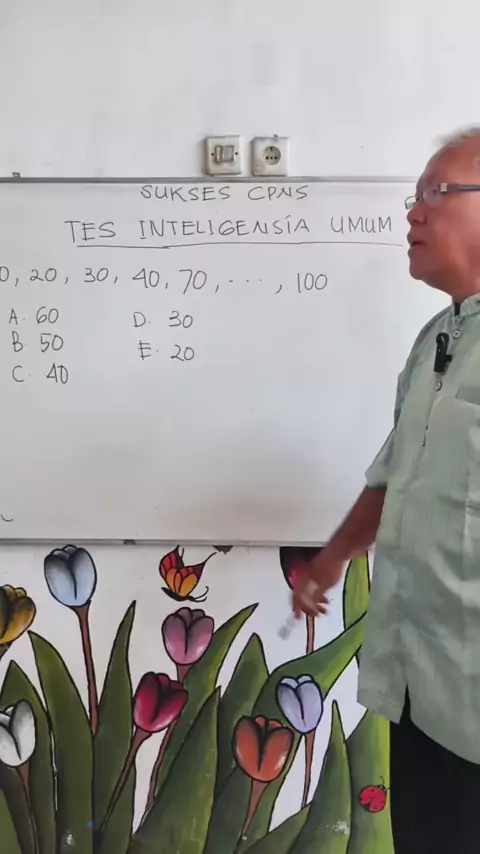 SUKSES CPNS
TES INTELIGENSIA UMUM
0, 20, 30, 40, 70, ..., 100
A. 60 D. 30
B. 50 E. 20
C. 40